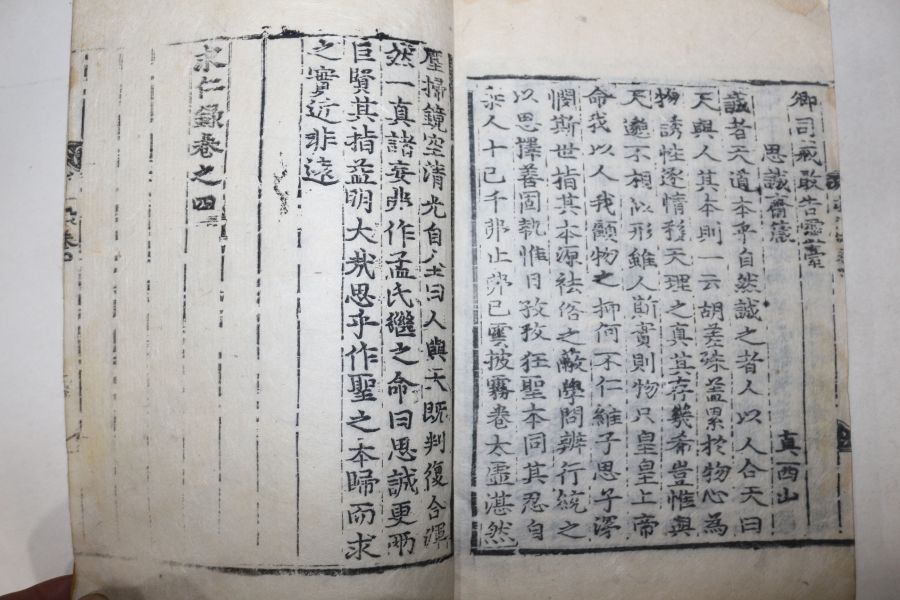 卿司戒敢告靈臺
思誠齋箴 真西山
誠者天道本乎自然誠之者人以人合天曰
天與人其本則一云胡差殊蓋累於物心為
物誘性逐情移天理之真其存幾希豈惟與
天邈不相似形雖人斯實則物只皇皇上帝
命我以人我顧物之抑何不仁維子思子深
憫斯世指其本源祛俗之蔽學問辨行統之
以思擇善固執惟日孜孜狂聖本同其忍自
棄人十己千弗止弗已雲披霧卷太虛湛然
塵掃鏡空清光自全曰人與天既判復合渾
然一真諸妄弗作孟氏繼之命曰思誠更兩
巨賢其指益明大哉思乎作聖之本歸而求
之實近非遠
求仁錄卷之四